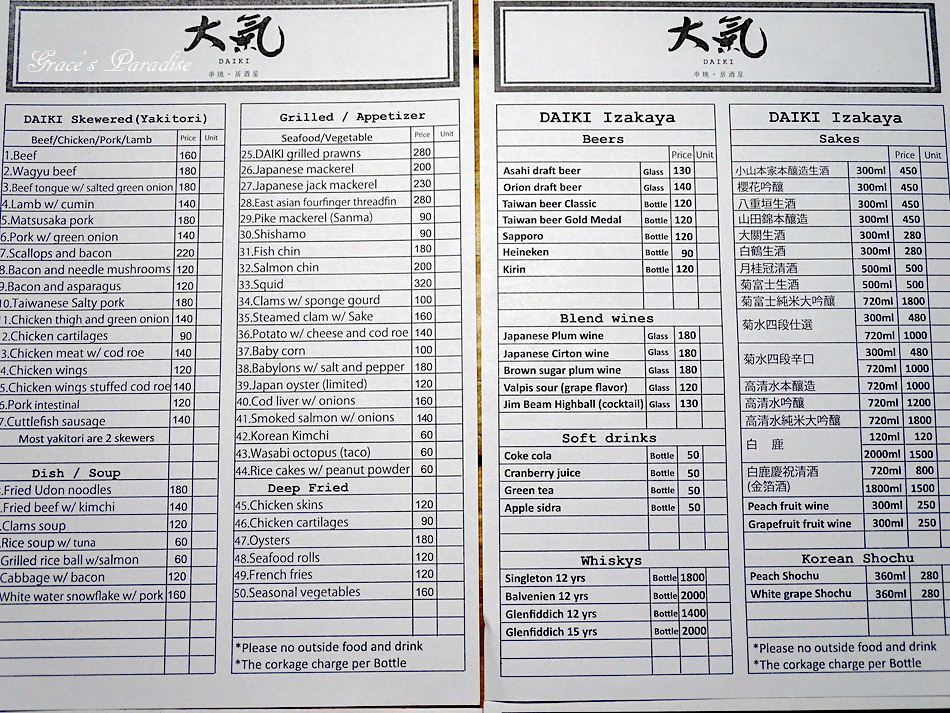 Grace's Paradise
大氣
DAIKI
串燒・居酒屋
DAIKI Skewered(Yakitori)
Beef/Chicken/Pork/Lamb Price Unit
1.Beef 160
2.Wagyu beef 180
3.Beef tongue w/ salted green onion 180
4.Lamb w/ cumin 140
5.Matsusaka pork 180
6.Pork w/ green onion 140
7.Scallops and bacon 220
8.Bacon and needle mushrooms 120
9.Bacon and asparagus 120
10.Taiwanese Salty pork 180
1.Chicken thigh and green onion 140
2.Chicken cartilages 90
3.Chicken meat w/ cod roe 140
4.Chicken wings 120
5.Chicken wings stuffed cod roe 140
6.Pork intestinal 120
7.Cuttlefish sausage 140
Most yakitori are 2 skewers
Dish / Soup
.Fried Udon noodles 180
.Fried beef w/ kimchi 140
.Clams soup 120
.Rice soup w/ tuna 60
Grilled rice ball w/salmon 60
Cabbage w/ bacon 120
White water snowflake w/ pork 160
Grilled / Appetizer
Seafood/Vegetable Price Unit
25.DAIKI grilled prawns 280
26.Japanese mackerel 200
27.Japanese jack mackerel 230
28.East asian fourfinger threadfin 280
29.Pike mackerel (Sanma) 90
30.Shishamo 90
31.Fish chin 180
32.Salmon chin 200
33.Squid 320
34.Clams w/ sponge gourd 100
35.Steamed clam w/ Sake 160
36.Potato w/ cheese and cod roe 140
37.Baby corn 100
38.Babylons w/ salt and pepper 180
39.Japan oyster (limited) 120
40.Cod liver w/ onions 160
41.Smoked salmon w/ onions 140
42.Korean Kimchi 60
43.Wasabi octopus (taco) 60
44.Rice cakes w/ peanut powder 60
Deep Fried
45.Chicken skins 120
46.Chicken cartilages 90
47.Oysters 180
48.Seafood rolls 120
49.French fries 120
50.Seasonal vegetables 160
*Please no outside food and drink
*The corkage charge per Bottle
大氣
DAIKI
串燒・居酒屋
DAIKI Izakaya
Beers
Price Unit
Asahi draft beer Glass 130
Orion draft beer Glass 140
Taiwan beer Classic Bottle 120
Taiwan beer Gold Medal Bottle 120
Sapporo Bottle 120
Heineken Bottle 90
Kirin Bottle 120
Blend wines
Japanese Plum wine Glass 180
Japanese Cirton wine Glass 180
Brown sugar plum wine Glass 180
Valpis sour (grape flavor) Glass 120
Jim Beam Highball (cocktail) Glass 130
Soft drinks
Coke cola Bottle 50
Cranberry juice Bottle 50
Green tea Bottle 50
Apple sidra Bottle 50
Whiskys
Singleton 12 yrs Bottle 1800
Balvenien 12 yrs Bottle 2000
Glenfiddich 12 yrs Bottle 1400
Glenfiddich 15 yrs Bottle 2000
DAIKI Izakaya
Sakes
Price Unit
小山本家本釀造生酒 300ml 450
櫻花吟釀 300ml 450
八重垣生酒 300ml 450
山田錦本釀造 300ml 450
大關生酒 300ml 280
白鶴生酒 300ml 280
月桂冠清酒 500ml 500
菊富士生酒 500ml 500
菊富士純米大吟釀 720ml 1800
菊水四段仕選 300ml 480
720ml 1000
菊水四段辛口 300ml 480
720ml 1000
高清水本釀造 720ml 1000
高清水吟釀 720ml 1200
高清水純米大吟釀 720ml 1800
白 鹿 120ml 120
2000ml 1500
白鹿慶祝清酒 720ml 800
(金箔酒) 1800ml 1500
Peach fruit wine 300ml 250
Grapefruit fruit wine 300ml 250
Korean Shochu
Peach Shochu 360ml 280
White grape Shochu 360ml 280
*Please no outside food and drink
*The corkage charge per Bottle